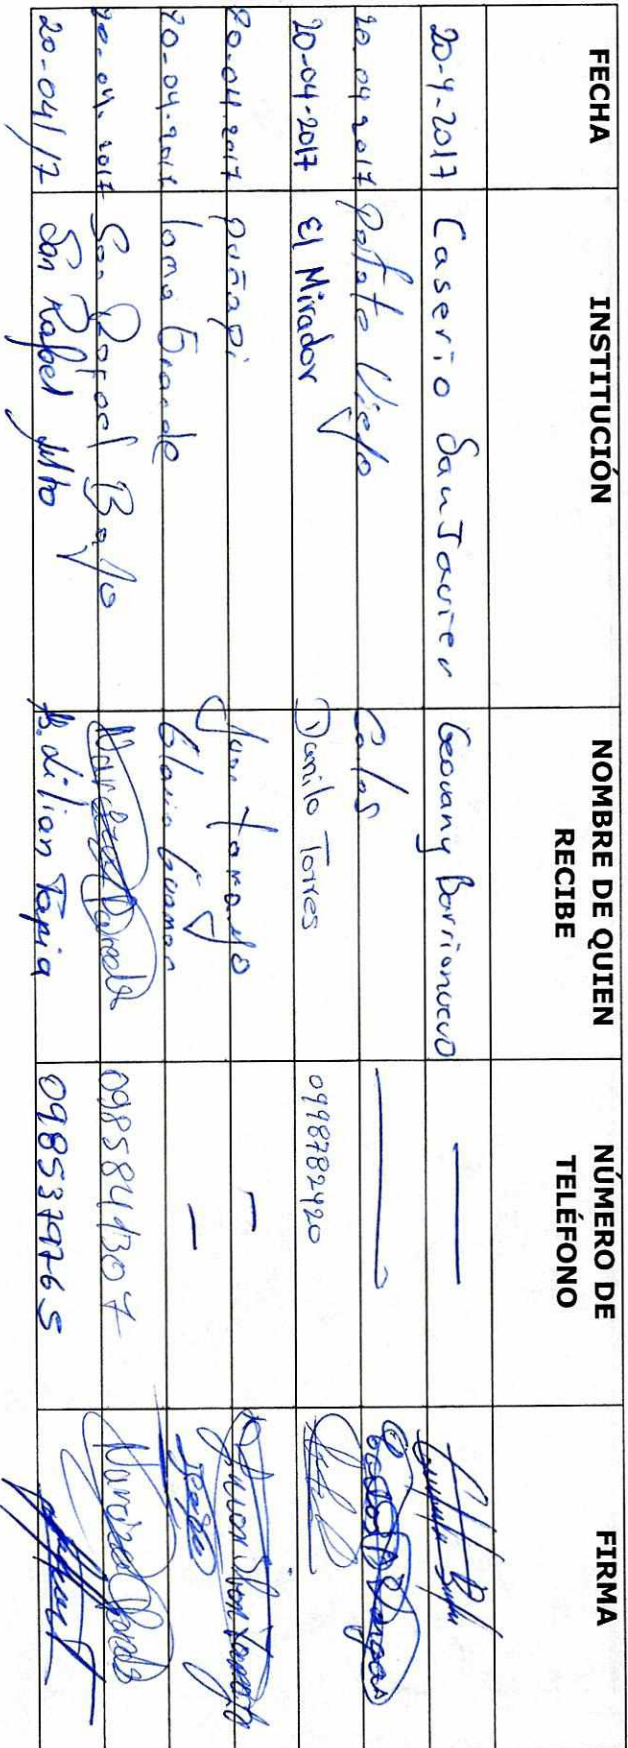 FECHA INSTITUCIÓN NOMBRE DE QUIEN RECIBE NÚMERO DE TELÉFONO FIRMA
20-4-2017 Caserio San Javier Geovany Barrionuevo —
20.04.2017 Patate Viejo Carlos — Carlos Vargas
20-04-2017 El Mirador Danilo Torres 0998782920
20.04.2017 Puñapi Juan Tamayo —
20-04-2017 Loma Grande Gloria Guaman —
20-04-2017 San Rafael Bajo Narciza 0985841307 Narciza
20-04/17 San Rafael Alto B. Lilian Tapia 0985379765